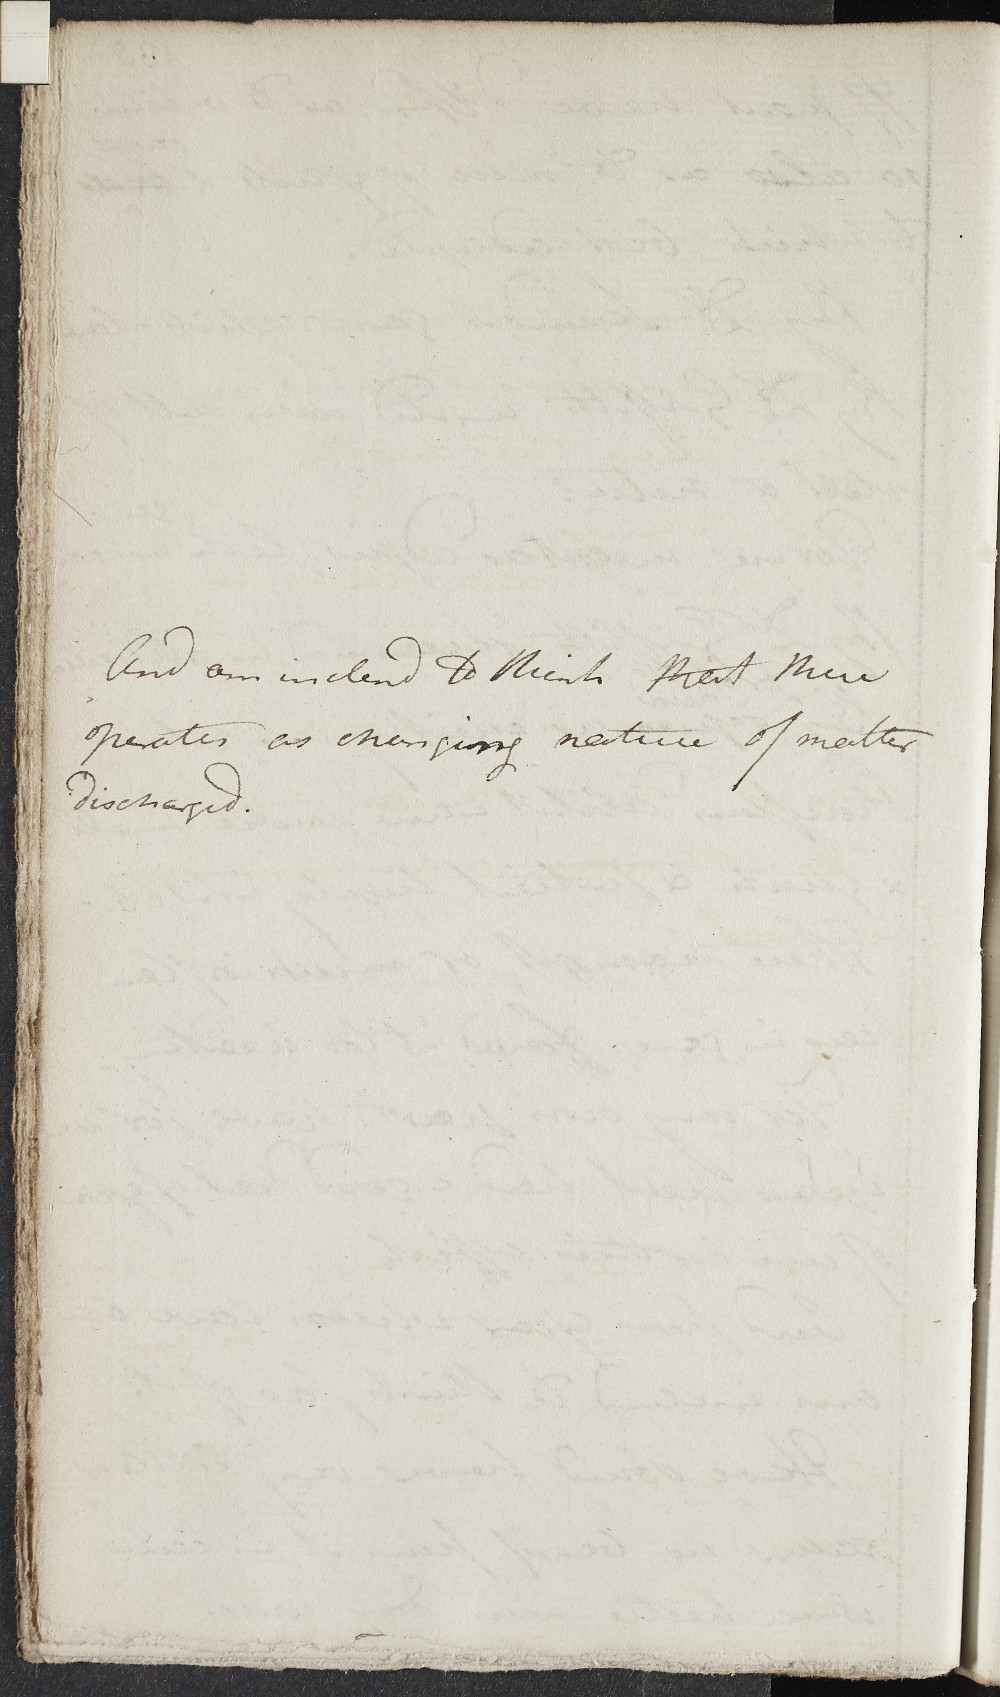 And am inclend to think that there
operates as changing nature of matter
discharged.